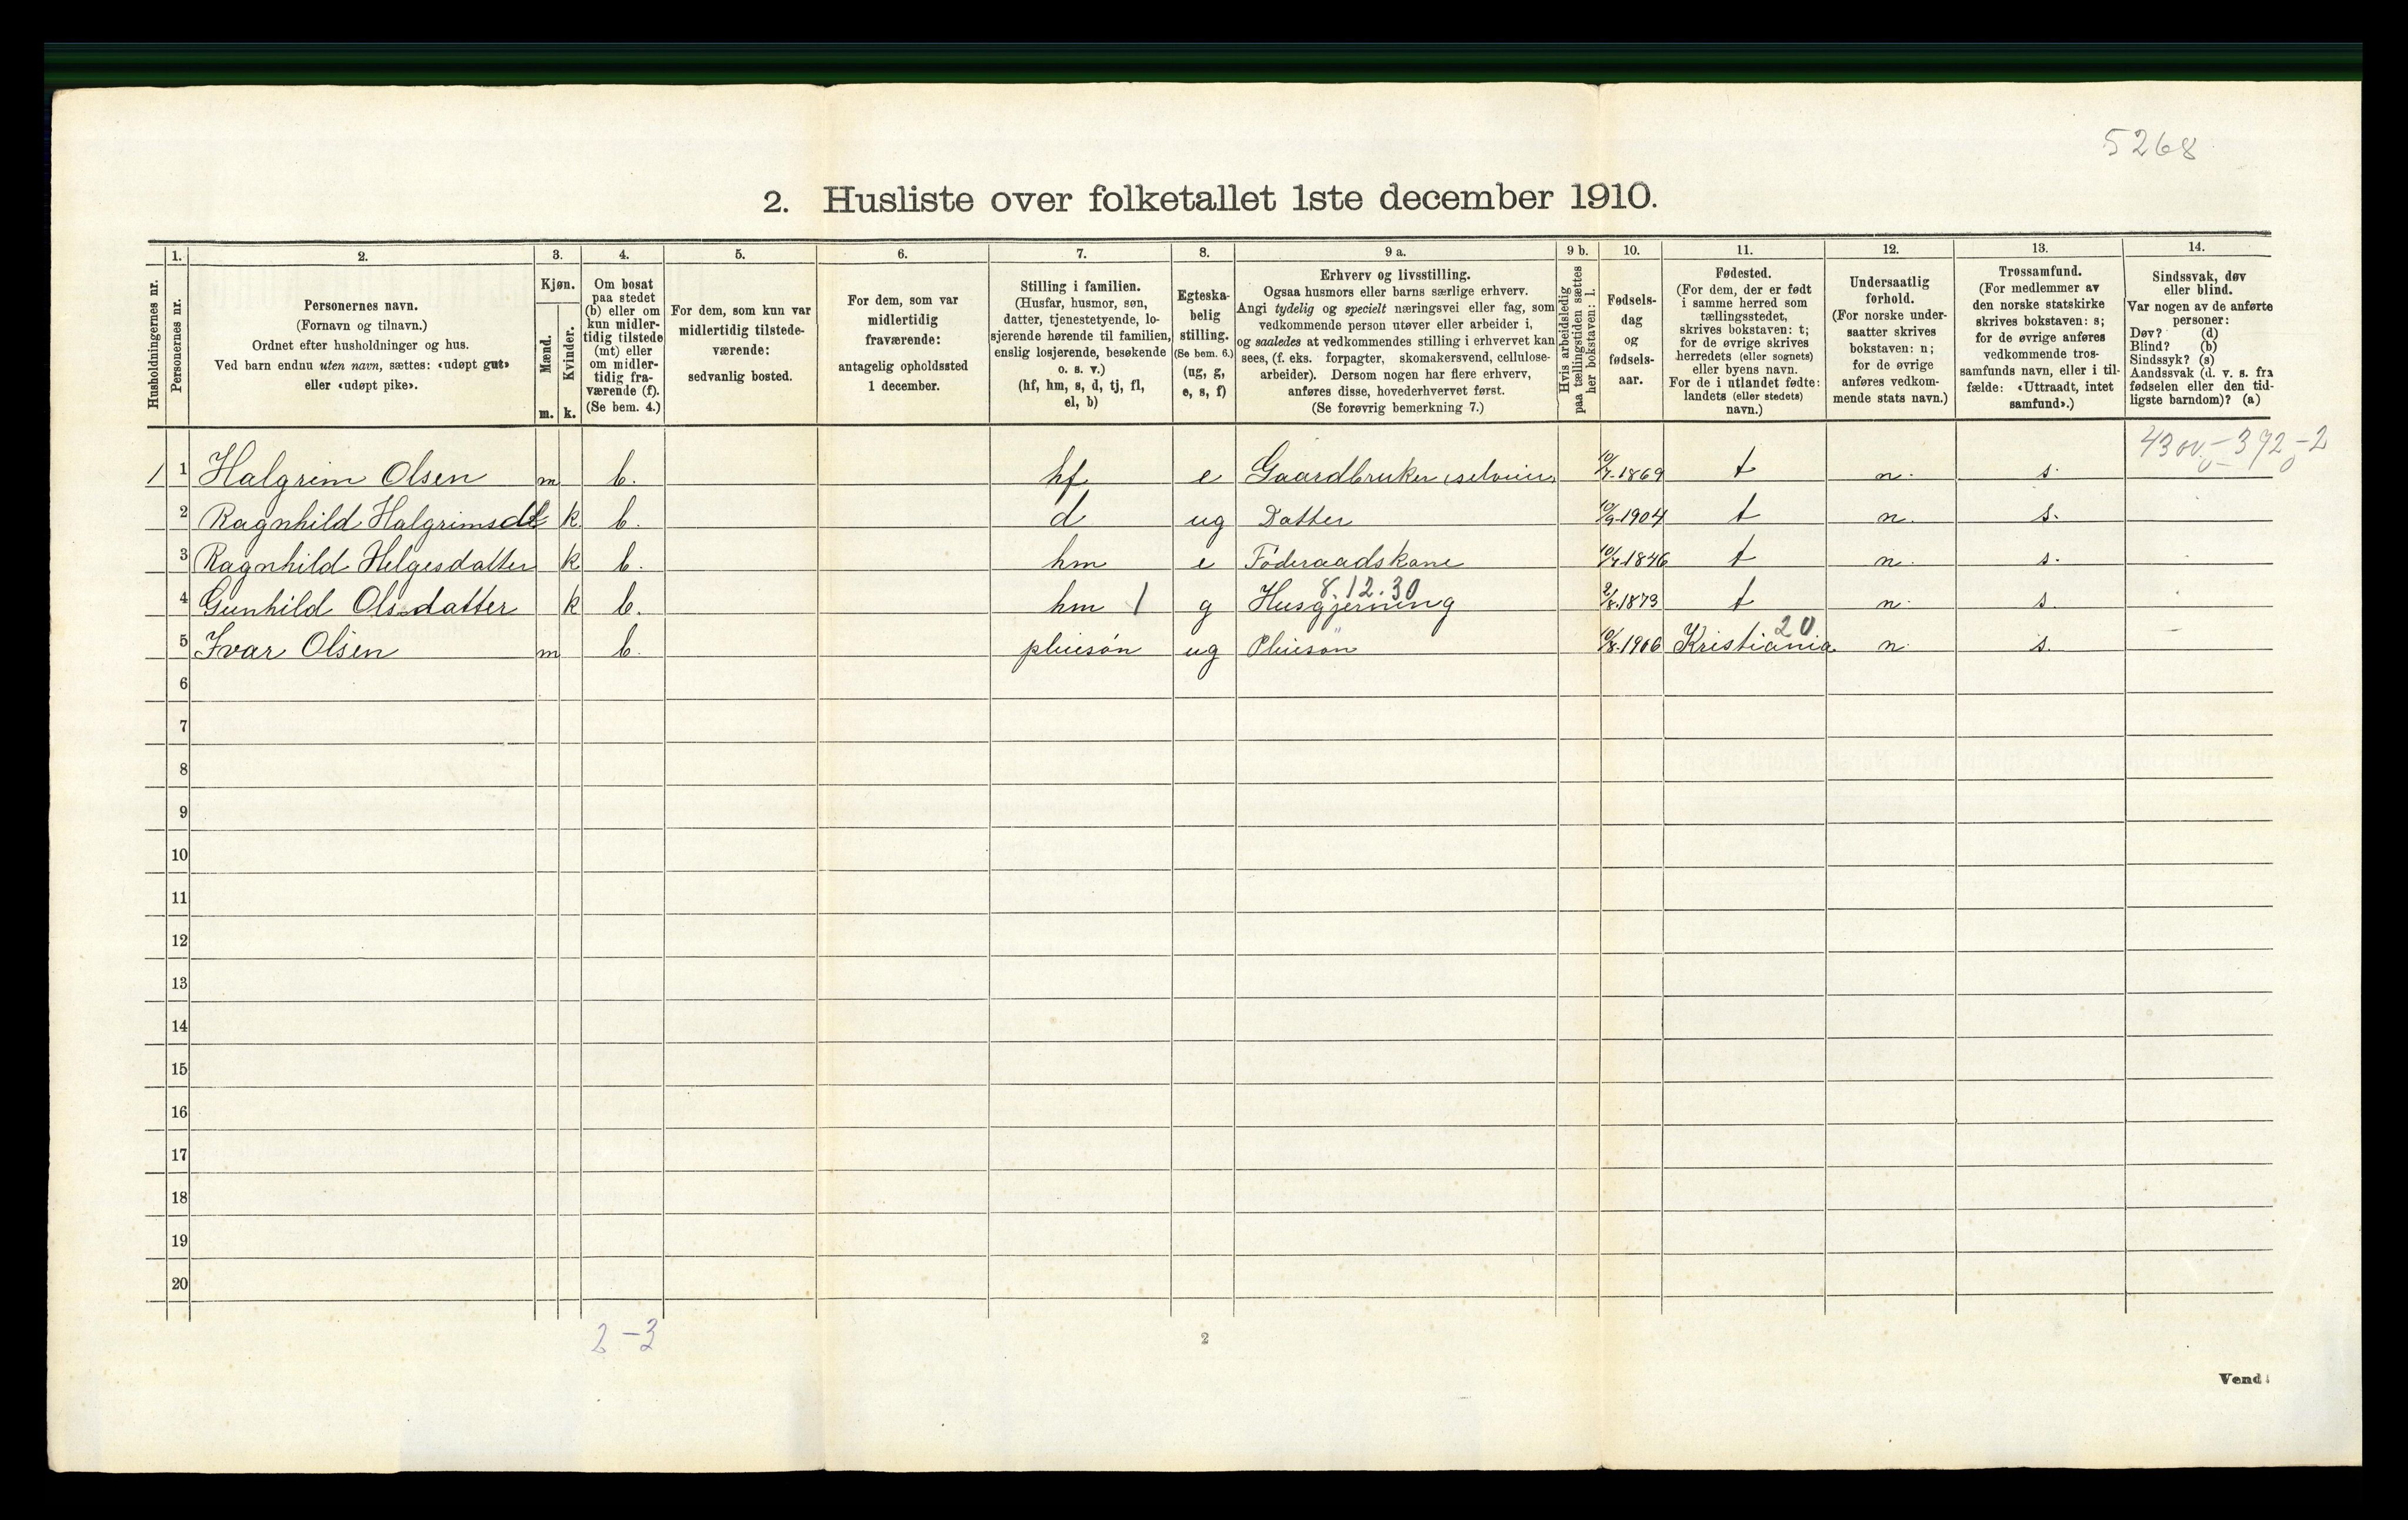 5268
2. Husliste over folketallet 1ste december 1910.
Husholdningernes nr.
1.
Personernes nr.
2.
Personernes navn.
(Fornavn og tilnavn.)
Ordnet efter husholdninger og hus.
Ved barn endnu uten navn, sættes: «udøpt gut»
eller «udøpt pike».
3.
Kjøn.
Mænd.
Kvinder.
m. k.
4.
Om bosat
paa stedet
(b) eller om
kun midler-
tidig tilstede
(mt) eller
om midler-
tidig fra-
værende (f).
(Se bem. 4.)
5.
For dem, som kun var
midlertidig tilstede-
værende:
sedvanlig bosted.
6.
For dem, som var
midlertidig
fraværende:
antagelig opholdssted
1 december.
7.
Stilling i familien.
(Husfar, husmor, søn,
datter, tjenestetyende, lo-
sjerende hørende til familien,
enslig losjerende, besøkende
o. s. v.)
(hf, hm, s, d, tj, fl,
el, b)
8.
Egteska-
belig
stilling.
(Se bem. 6.)
(ug, g,
e, s, f)
9 a.
Erhverv og livsstilling.
Ogsaa husmors eller barns særlige erhverv.
Angi tydelig og specielt næringsvei eller fag, som
vedkommende person utøver eller arbeider i,
og saaledes at vedkommendes stilling i erhvervet kan
sees, (f. eks. forpagter, skomakersvend, cellulose-
arbeider). Dersom nogen har flere erhverv,
anføres disse, hovederhvervet først.
(Se forøvrig bemerkning 7.)
9 b.
Hvis arbeidsledig
paa tællingstiden sættes
her bokstaven: l.
10.
Fødsels-
dag
og
fødsels-
aar.
11.
Fødested.
(For dem, der er født
i samme herred som
tællingsstedet,
skrives bokstaven: t;
for de øvrige skrives
herredets (eller sognets)
eller byens navn.
For de i utlandet fødte:
landets (eller stedets)
navn.)
12.
Undersaatlig
forhold.
(For norske under-
saatter skrives
bokstaven: n;
for de øvrige
anføres vedkom-
mende stats navn.)
13.
Trossamfund.
(For medlemmer av
den norske statskirke
skrives bokstaven: s;
for de øvrige anføres
vedkommende tros-
samfunds navn, eller i til-
fælde: «Uttraadt, intet
samfund».)
14.
Sindssvak, døv
eller blind.
Var nogen av de anførte
personer:
Døv? (d)
Blind? (b)
Sindssyk? (s)
Aandssvak (d. v. s. fra
fødselen eller den tid-
ligste barndom)? (a)
1 1 Halgrim Olsen m b. hf e Gaardbruker, selveier 10/7.1869 t n. s.
2 Ragnhild Halgrimsdt k b. d ug Datter 10/9.1904 t n. s.
3 Ragnhild Helgesdatter k b. hm e Føderaadskone 10/7.1846 t n. s.
8.12.30
4 Gunhild Olsdatter k b. hm 1 g Husgjerning 2/8.1873 t n. s.
20
5 Ivar Olsen m b. pleiesøn ug Pleiesøn 10/8.1906 Kristiania n. s.
6
7
8
9
10
11
12
13
14
15
16
17
18
19
20
2-3
2
Vend!